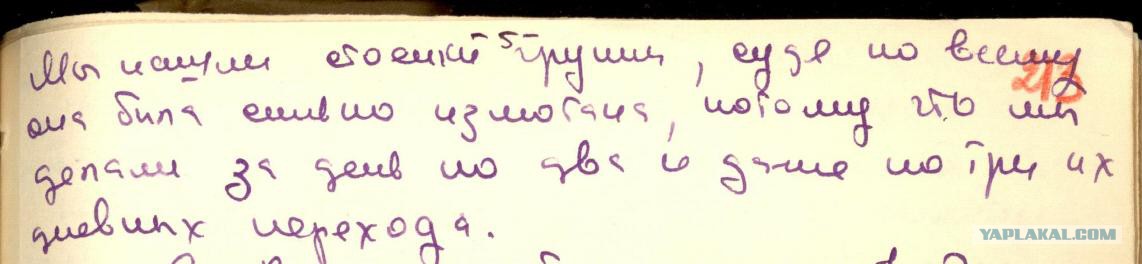 Мы нашли стоянки 5 группы, судя по всему
213
она была сильно измотана, потому что мы
делали за день по два и даже по три их
дневных перехода.
YAPLAKAL.COM